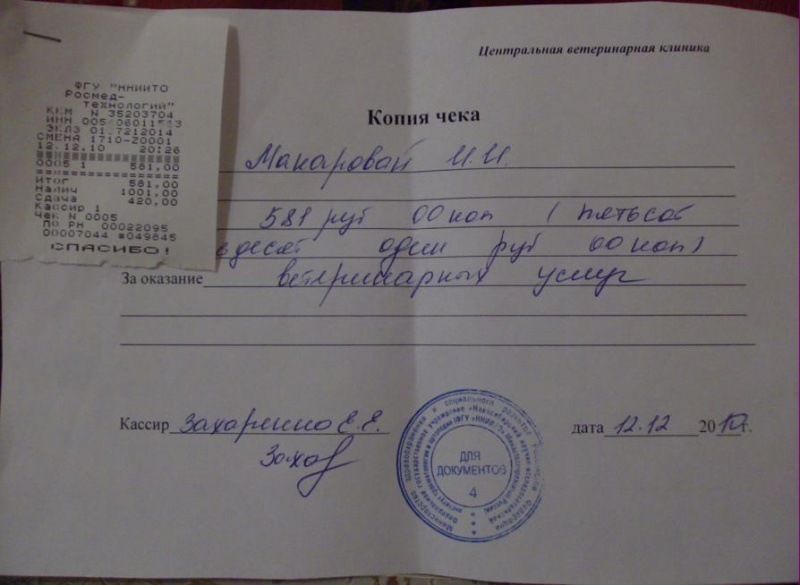 Центральная ветеринарная клиника
ФГУ "ННИИТО
Росмед-
технологий"
ККМ N 35203704
ИНН 005406011563
ЭКЛЗ 01.7212014
СМЕНА 1710-20001
12.12.10 20:26
0005 1 581,00
ИТОГ 581,00
Налич 1001,00
Сдача 420,00
Кассир 1
Чек N 0005
ПО РН 00022095
00007044 049845
СПАСИБО!
Копия чека
Макаровай И.И.
581 руб 00 коп ( пятьсот
десят один руб 00 коп)
За оказание ветеринарных услуг
Кассир Захаренко Е.Е.
Захар
дата 12.12 2010г.
ДЛЯ
ДОКУМЕНТОВ
4